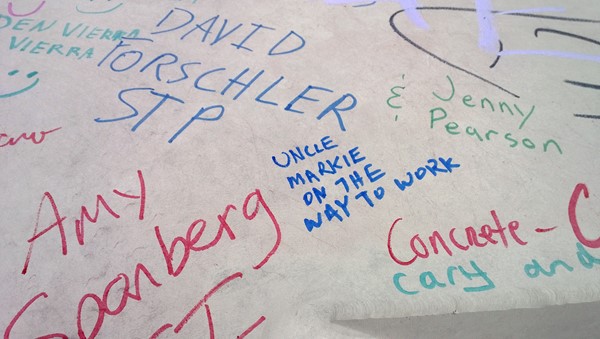 DEN VIERRA
VIERRA
DAVID
FORSCHLER
STP
& Jenny
Pearson
UNCLE
MARKIE
ON THE
WAY TO WORK
AMY
Spanberg
Concrete -
cary and